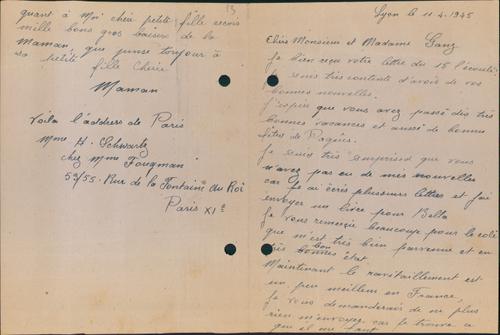 quant à Moi chère petite fille reçois
mille bons gros baisers de la
Maman, que pense toujour à
sa petite
fille Chérie
Maman
Voila l'address de Paris
Mme H. Schwartz
chez Mme Fougman
53/55. Rue de la Fontaine du Roi
Paris XIe
13
Lyon le 11.4.1945
Chers Monsieur et Madame Ganz
Je bien reçu votre lettre du 15 l'écoulé
Je suis très contente d'avoir de vos
bonnes nouvelles.
J'espère que vous avez passé des très
bonnes vacances et aussi de bonnes
fêtes de Pâques.
Je suis très surprise que vous
n'avez pas eu de mes nouvelles
car je ai écris plusieurs lettres et j'ai
envoyer un livre pour Bella
Je vous remercie beaucoup pour le coli
que m'est très bien parvenue et en
très bon état
Maintenant le ravitaillement est
un peu meilleur en France,
Je vous demanderais de ne plus
rien m'envoyer car je trouve a
que il me faut